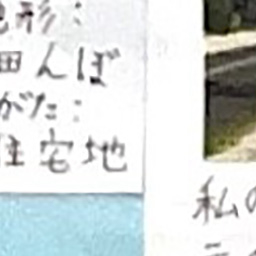 形:
田んぼ
がた:
住宅地
私の